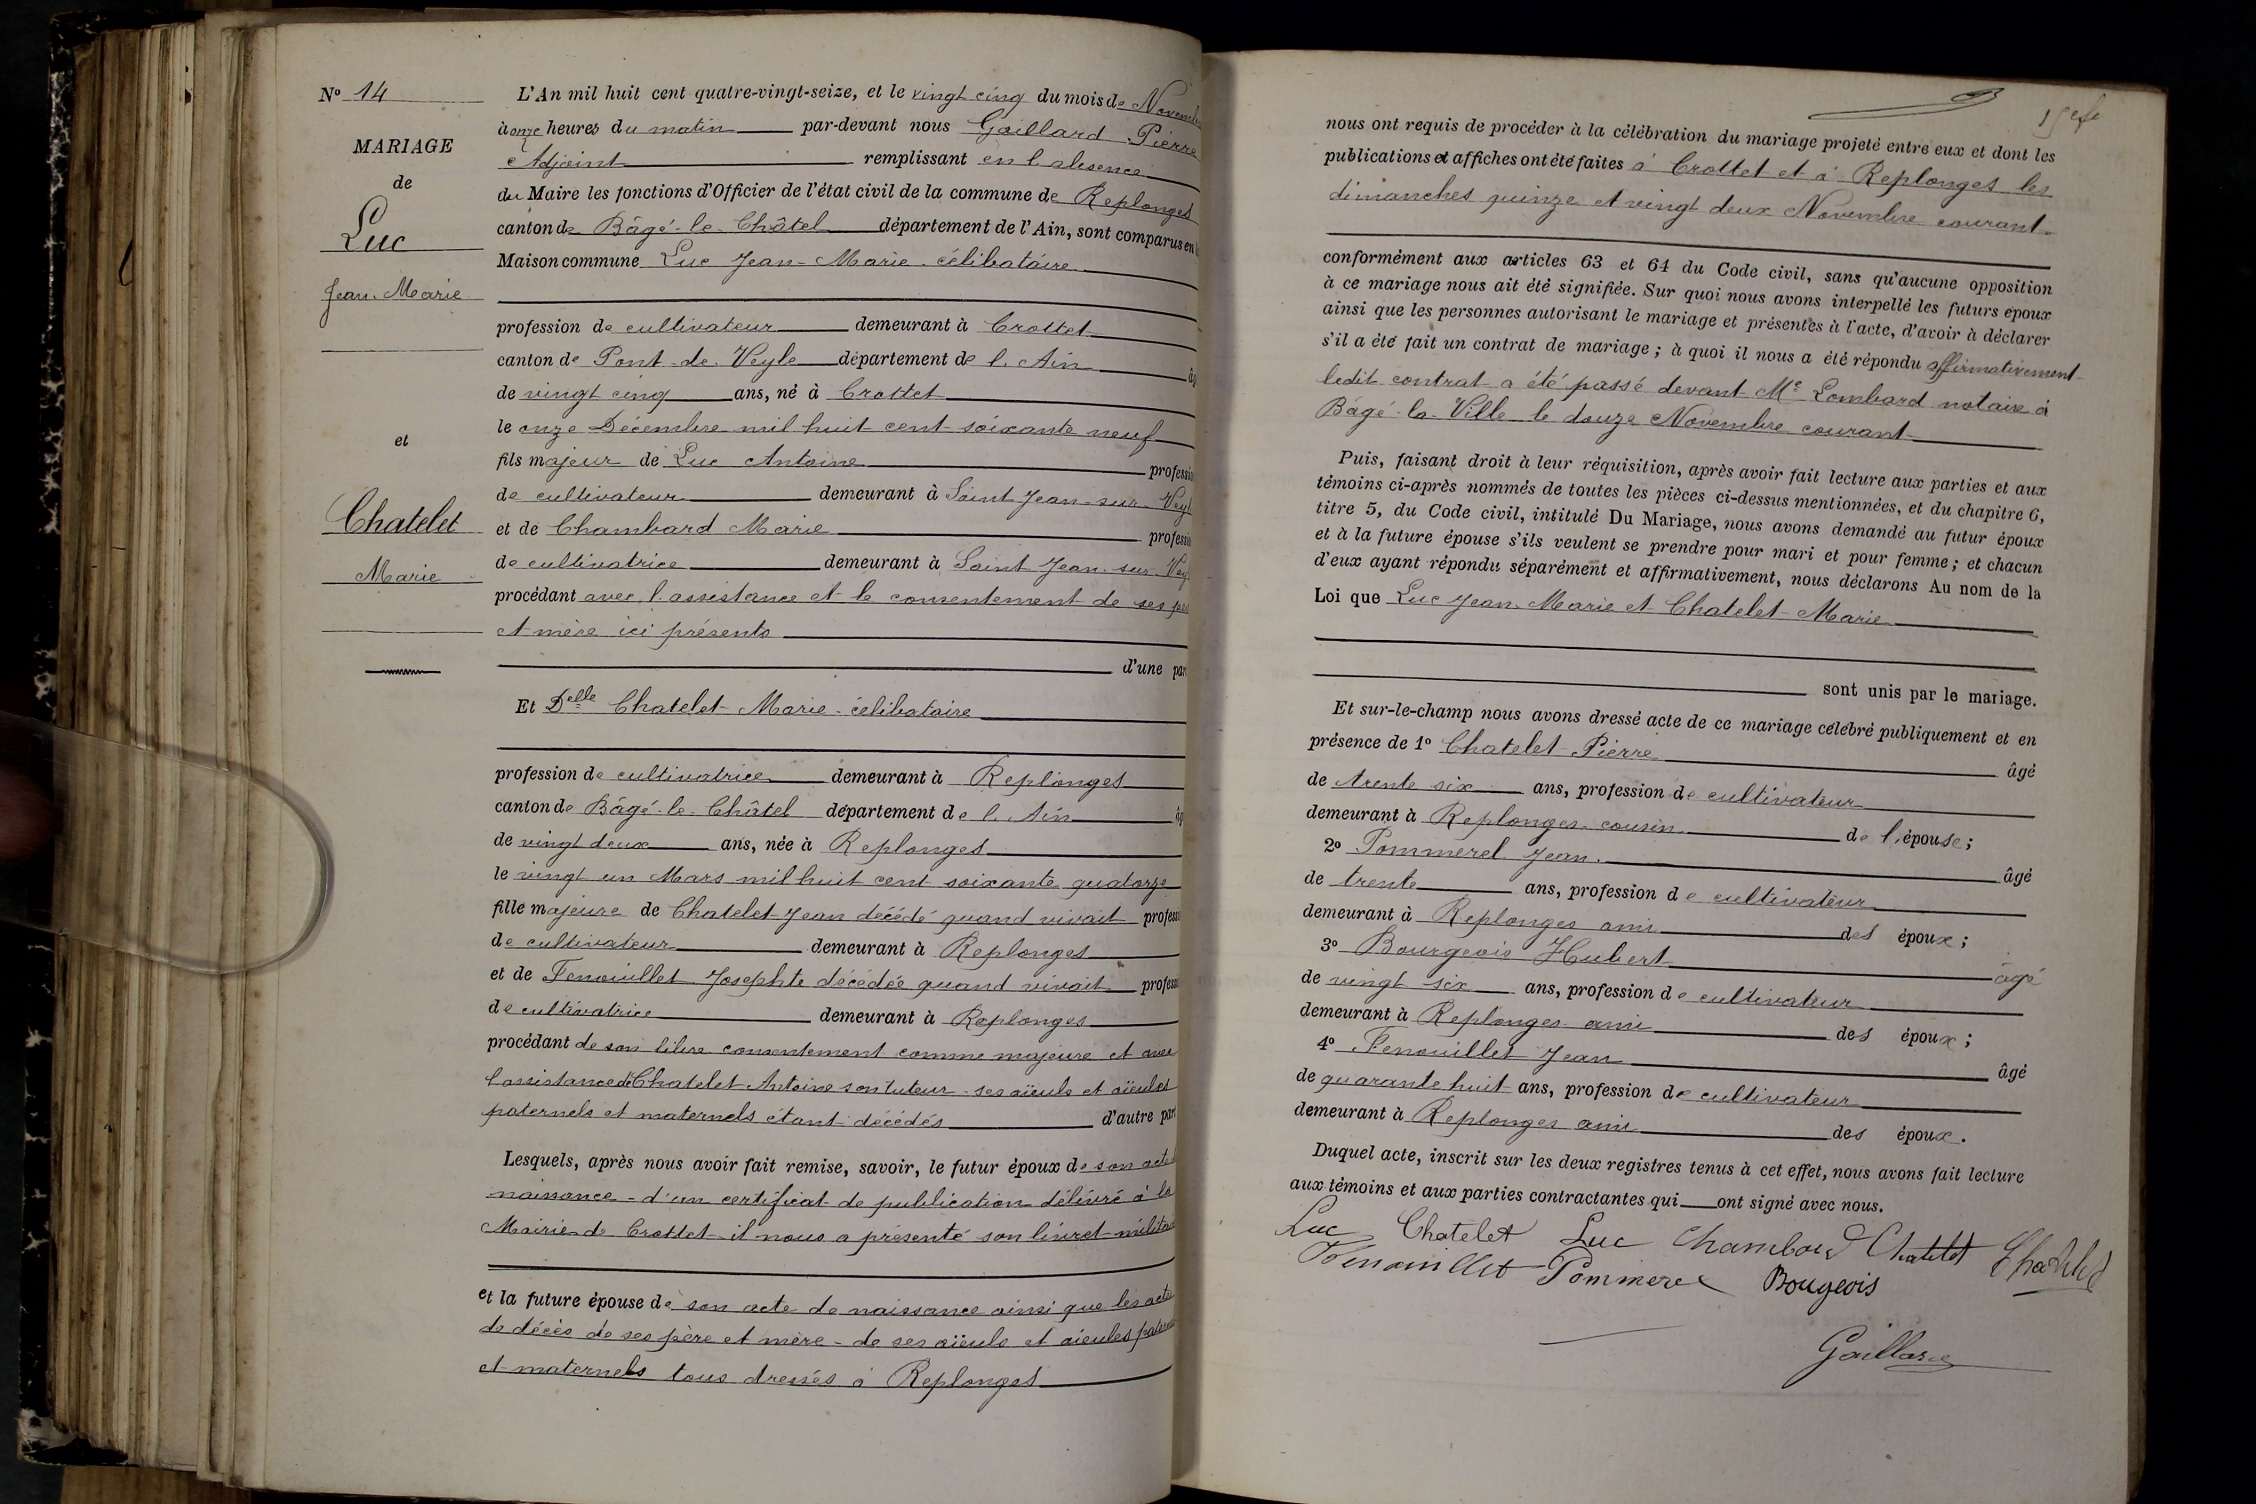 Nº 14
MARIAGE
de
Luc
Jean-Marie
et
Chatelet
Marie
L'An mil huit cent quatre-vingt-seize, et le vingt cinq du mois de Novembre
à onze heures du matin par-devant nous Gaillard Pierre
Adjoint remplissant en l'absence
du Maire les fonctions d'Officier de l'état civil de la commune de Replonges
canton de Bâgé-le-Châtel département de l'Ain, sont comparus en
Maison commune Luc Jean-Marie célibataire
profession de cultivateur demeurant à Crottet
canton de Pont-de-Veyle département de l'Ain âg
de vingt cinq ans, né à Crottet
le onze Décembre mil huit cent soixante neuf
fils majeur de Luc Antoine professio
de cultivateur demeurant à Saint Jean-sur-Veyl
et de Chambard Marie professio
de cultivatrice demeurant à Saint Jean-sur-Vey
procédant avec l'assistance et le consentement de ses père
et mère ici présents
d'une par
Et Delle Chatelet Marie célibataire
profession de cultivatrice demeurant à Replonges
canton de Bâgé-le-Châtel département de l'Ain âg
de vingt deux ans, née à Replonges
le vingt un Mars mil huit cent soixante quatorze
fille majeure de Chatelet Jean décédé quand vivait profess
de cultivateur demeurant à Replonges
et de Fenouillet Josephte décédée quand vivait profess
de cultivatrice demeurant à Replonges
procédant de son libre consentement comme majeure et avec
l'assistance de Chatelet Antoine son tuteur - ses aïeuls et aïeules
paternels et maternels étant décédés d'autre par
Lesquels, après nous avoir fait remise, savoir, le futur époux de son acte
naissance - d'un certificat de publication délivré à la
Mairie de Crottet - il nous a présenté son livret militaire
et la future épouse de son acte de naissance ainsi que les actes
de décès de ses père et mère - de ses aïeuls et aïeules paternels
et maternels tous dressés à Replonges
nous ont requis de procéder à la célébration du mariage projeté entre eux et dont les
publications et affiches ont été faites à Crottet et à Replonges les
dimanches quinze et vingt deux Novembre courant
conformément aux articles 63 et 64 du Code civil, sans qu'aucune opposition
à ce mariage nous ait été signifiée. Sur quoi nous avons interpellé les futurs époux
ainsi que les personnes autorisant le mariage et présentes à l'acte, d'avoir à déclarer
s'il a été fait un contrat de mariage ; à quoi il nous a été répondu affirmativement
ledit contrat a été passé devant Me Lombard notaire à
Bâgé-la-Ville le douze Novembre courant
Puis, faisant droit à leur réquisition, après avoir fait lecture aux parties et aux
témoins ci-après nommés de toutes les pièces ci-dessus mentionnées, et du chapitre 6,
titre 5, du Code civil, intitulé Du Mariage, nous avons demandé au futur époux
et à la future épouse s'ils veulent se prendre pour mari et pour femme ; et chacun
d'eux ayant répondu séparément et affirmativement, nous déclarons Au nom de la
Loi que Luc Jean-Marie et Chatelet Marie
sont unis par le mariage.
Et sur-le-champ nous avons dressé acte de ce mariage célébré publiquement et en
présence de 1º Chatelet Pierre âgé
de trente six ans, profession de cultivateur
demeurant à Replonges cousin de l'épouse ;
2º Pommerel Jean âgé
de trente ans, profession de cultivateur
demeurant à Replonges ami des époux ;
3º Bourgeois Hubert âgé
de vingt six ans, profession de cultivateur
demeurant à Replonges ami des époux ;
4º Fenouillet Jean âgé
de quarante huit ans, profession de cultivateur
demeurant à Replonges ami des époux.
Duquel acte, inscrit sur les deux registres tenus à cet effet, nous avons fait lecture
aux témoins et aux parties contractantes qui ont signé avec nous.
Luc Chatelet Luc Chambard Chatelet Chatelet
Fenouillet Pommerel Bougeois
Gaillard